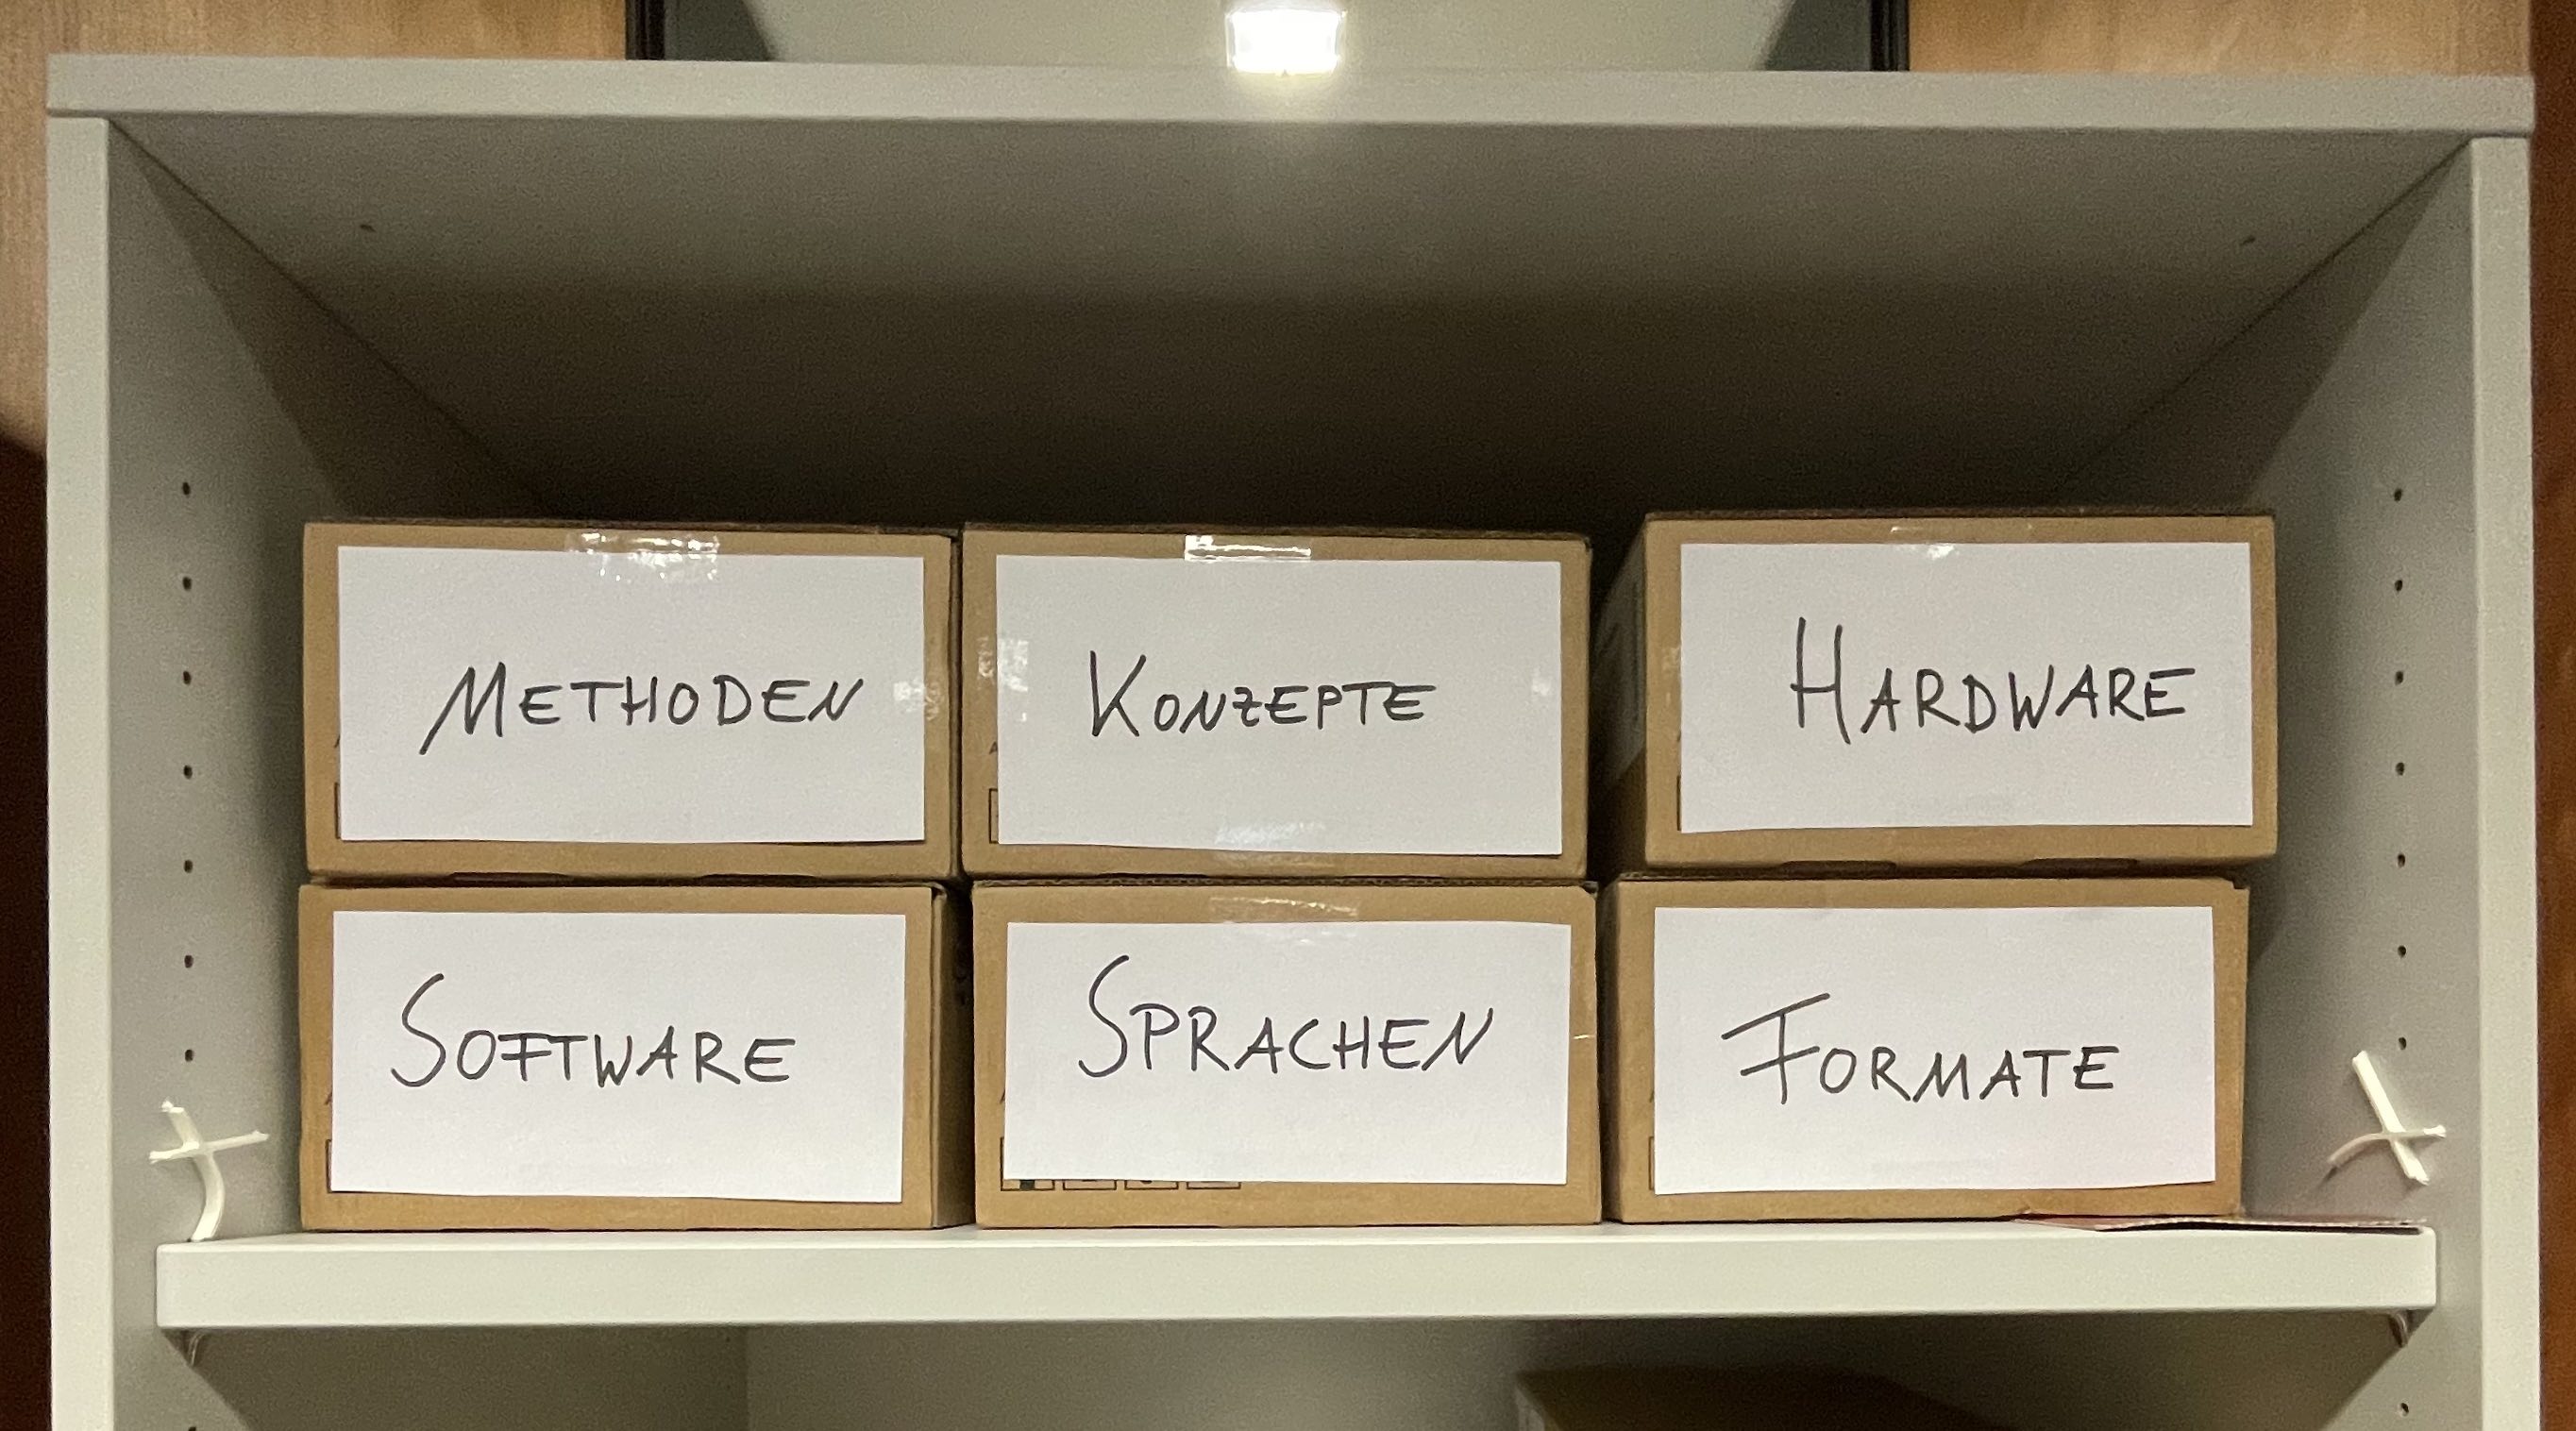 METHODEN
KONZEPTE
HARDWARE
SOFTWARE
SPRACHEN
FORMATE